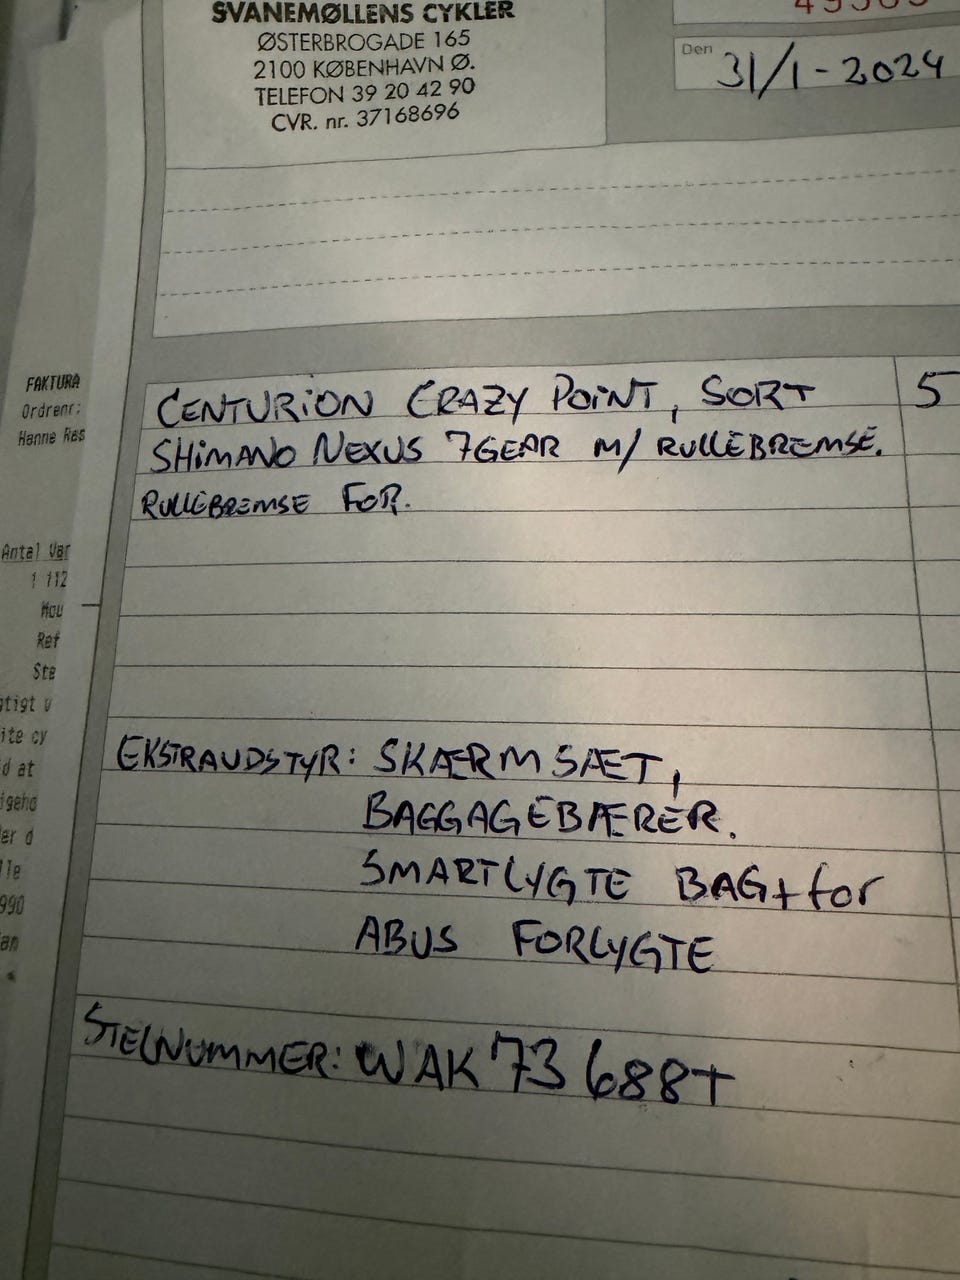 SVANEMØLLENS CYKLER
ØSTERBROGADE 165
2100 KØBENHAVN Ø.
TELEFON 39 20 42 90
CVR. nr. 37168696
Den 31/1-2024
CENTURION CRAZY POINT, SORT 5
SHIMANO NEXUS 7GEAR M/ RULLEBREMSE.
RULLEBREMSE FOR.
EKSTRAUDSTYR: SKÆRMSÆT,
BAGGAGEBÆRER.
SMARTLYGTE BAG+for
ABUS FORLYGTE
STELNUMMER: WAK73688T
FAKTURA
Ordrenr:
Hanne Ras
Antal Var
1 112
Mou
Ref
Ste
gtigt v
ite cy
d at
igeho
er d
lle
990